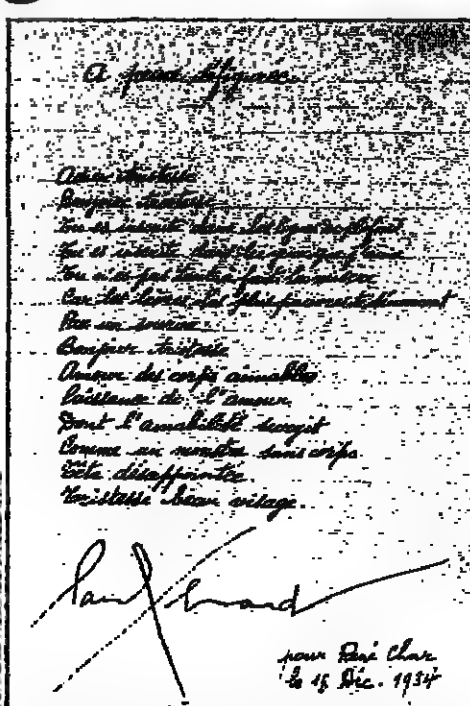 A peine défigurée
Adieu tristesse
Bonjour tristesse
Tu es inscrite dans les lignes du plafond
Tu es inscrite dans les yeux que j'aime
Tu n'es pas tout à fait la misère
Car les lèvres les plus pauvres te dénoncent
Par un sourire
Bonjour tristesse
Amour des corps aimables
Puissance de l'amour
Dont l'amabilité surgit
Comme un monstre sans corps
Tête désappointée
Tristesse beau visage.
Paul Eluard
pour René Char
le 15 Déc. 1934